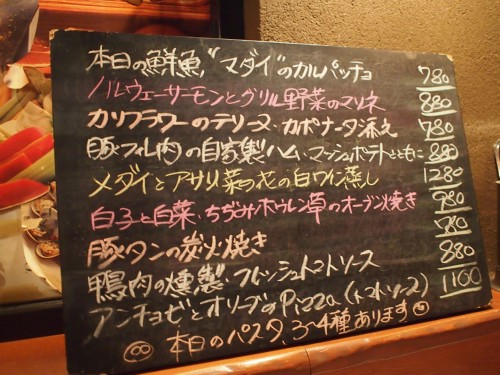 本日の鮮魚,"マダイ"のカルパッチョ 780
ノルウェーサーモンとグリル野菜のマリネ 880
カリフラワーのテリーヌ・カポナータ添え 780
豚フィレ肉の自家製ハム・マッシュポテトとともに 880
メダイとアサリ菜の花の白ワイン蒸し 1280
白子と白菜、ちぢみホウレン草のオーブン焼き 980
豚タンの炭火焼き 780
鴨肉の燻製・フレッシュトマトソース 880
アンチョビとオリーブのPizza(トマトソース) 1100
本日のパスタ、3~4種あります